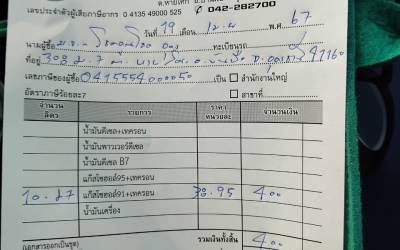 ต.หายโศก อ.บ้านผือ
เลขประจำตัวผู้เสียภาษีอากร 0 4135 49000 525 042-282700
วันที่ 19 เดือน เม.ย พ.ศ. 67
นามผู้ซื้อ ทะเบียนรถ
ที่อยู่ 308 ม.7 ต. อ. จ. 41160
เลขภาษีของผู้ซื้อ 0415554000050 เป็น สำนักงานใหญ่
อัตราภาษีร้อยละ7 สาขาที่
จำนวนลิตร รายการ ราคาหน่วยละ จำนวนเงิน
น้ำมันดีเซล+เทครอน
น้ำมันพาวเวอร์ดีเซล
น้ำมันดีเซล B7
แก๊สโซฮอล์95+เทครอน
10.27 แก๊สโซฮอล์91+เทครอน 38.95 400
น้ำมันเครื่อง
(เอกสารออกเป็นชุด) รวมเงินทั้งสิ้น 400